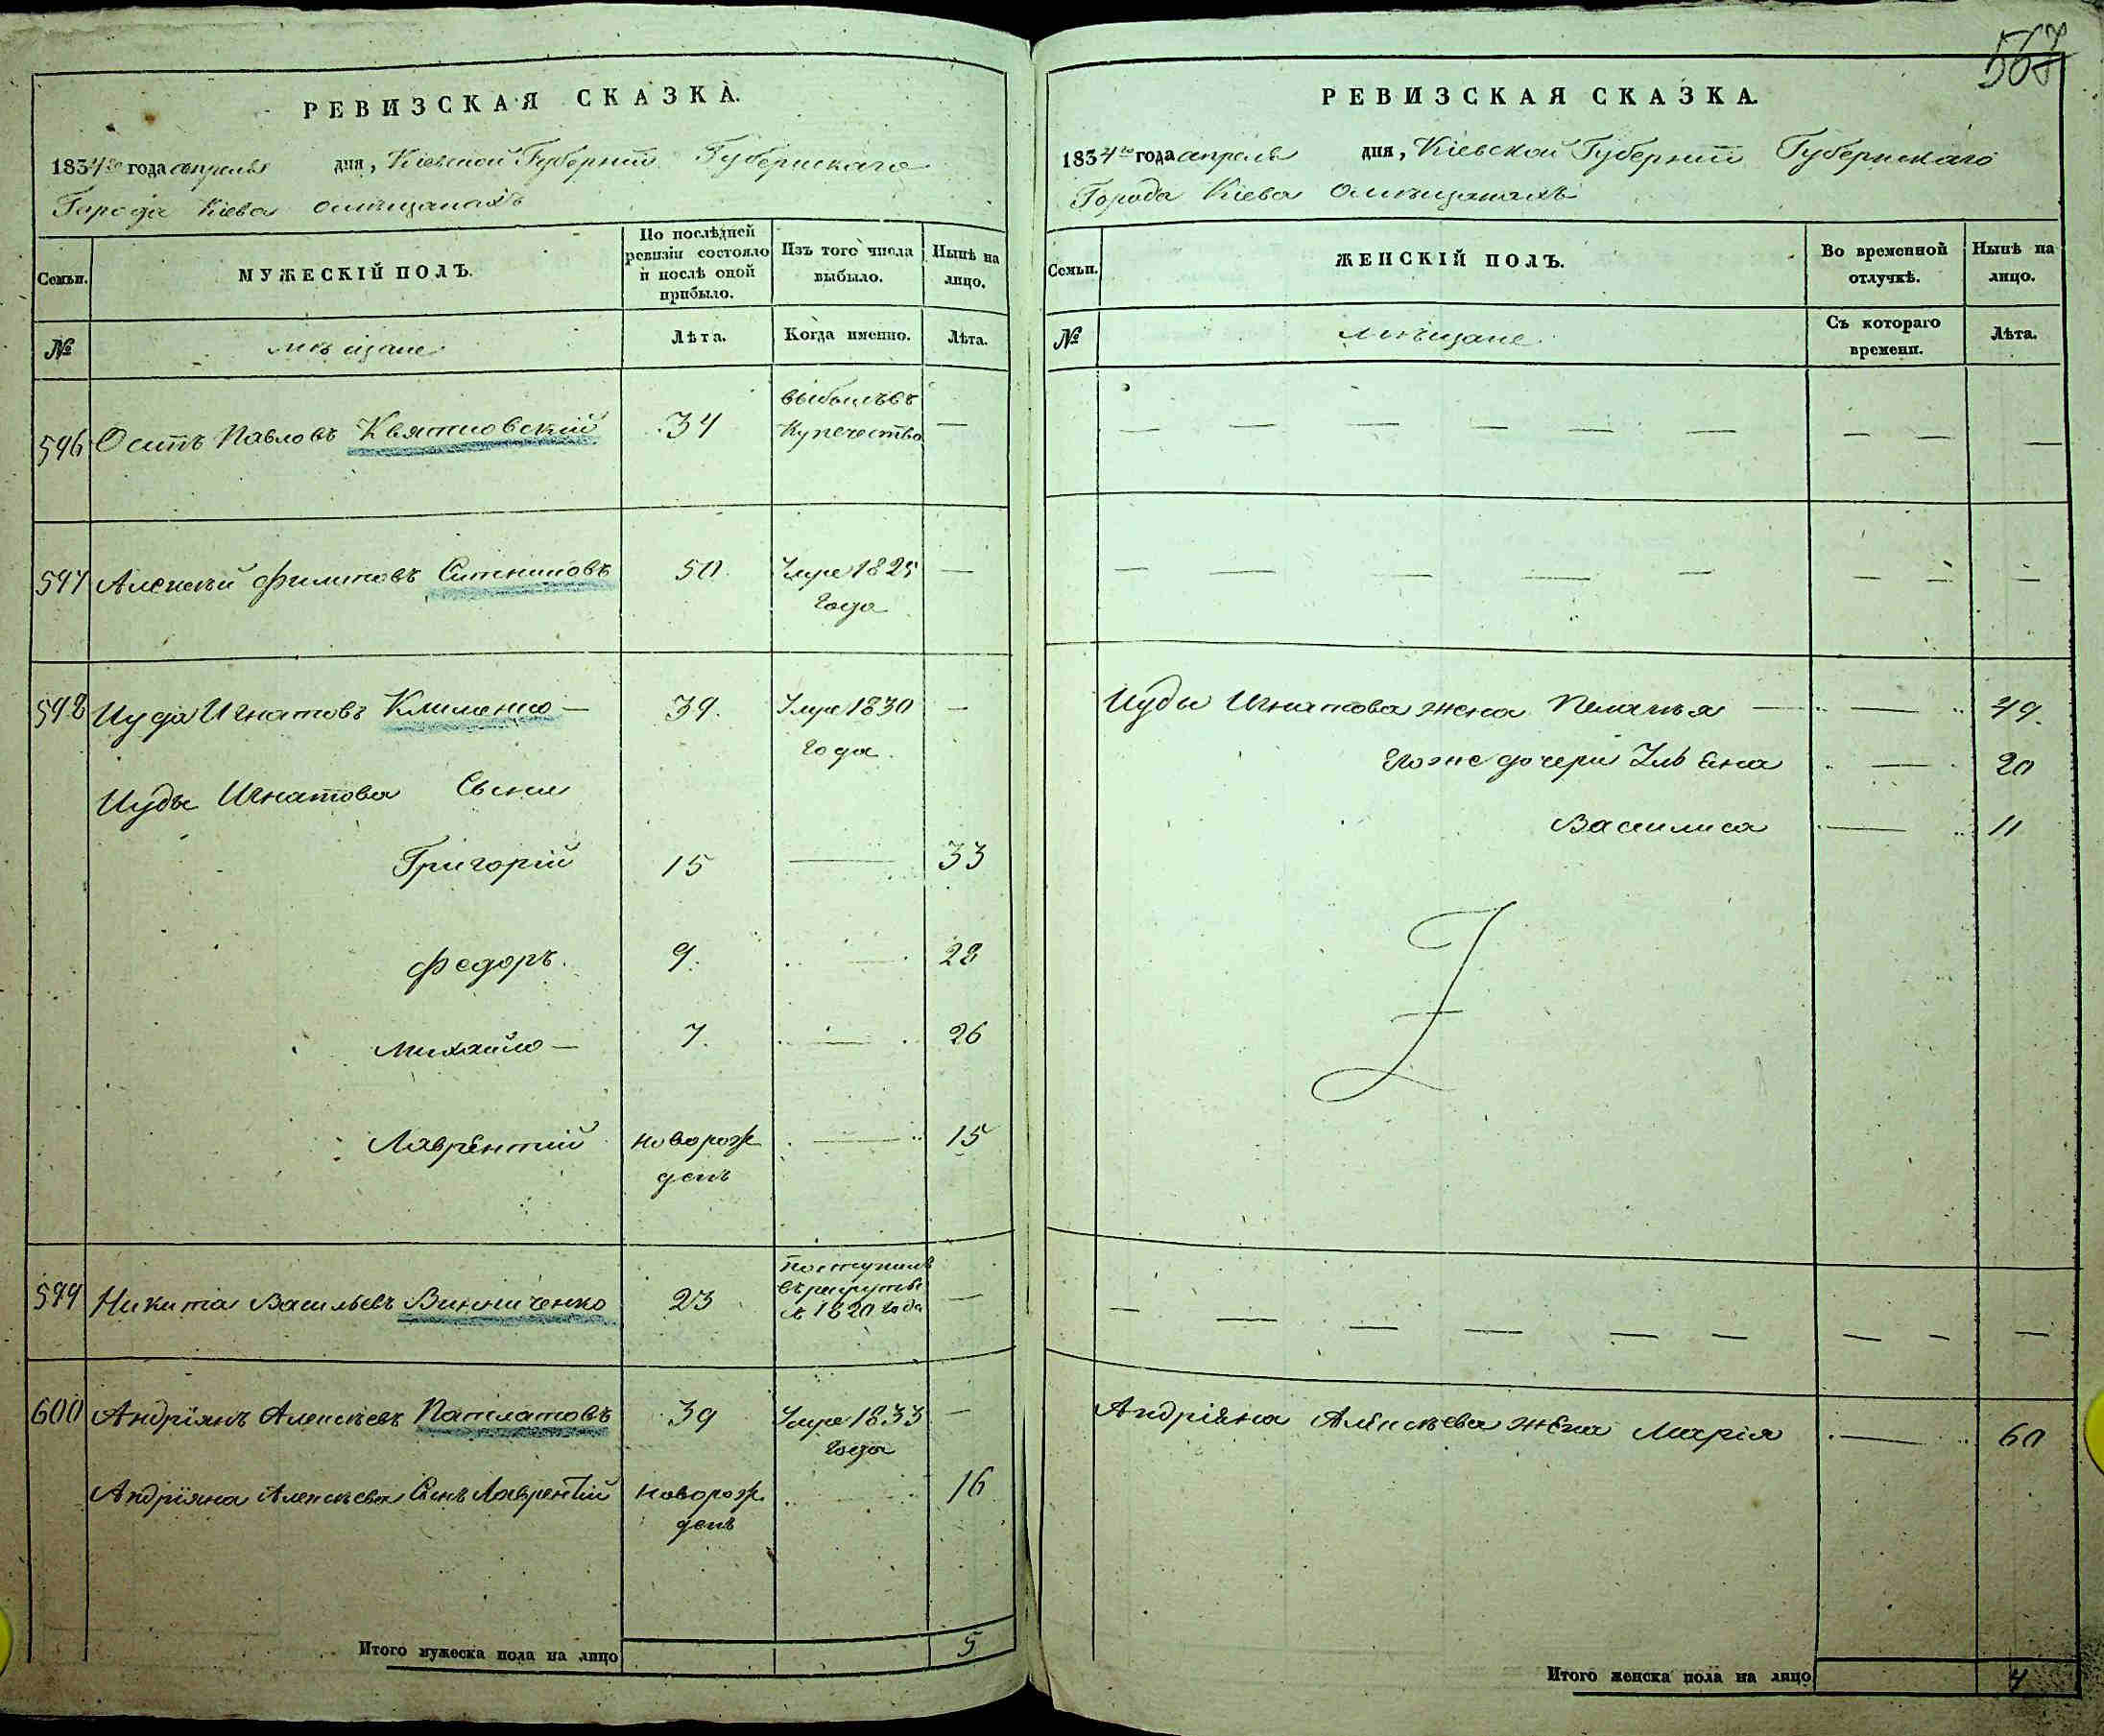 РЕВИЗСКАЯ СКАЗКА.
1834го года апреля дня, Кіевской Губерніи Губернскаго
Города Кіева омѣщанахъ
Семьи. МУЖЕСКІЙ ПОЛЪ. По послѣдней ревизіи состояло и послѣ оной прибыло. Изъ того числа выбыло. Нынѣ на лицо.
№ мѣщане Лѣта. Когда именно. Лѣта.
596 Осипъ Павловъ Квятковскій 34 выбылъ въ Купечество —
597 Алексѣй Филиповъ Ситниковъ 50 Умре 1825 года —
598 Иуда Игнатовъ Клименко — 39. Умре 1830 года —
Иуды Игнатова Сыны
Григорій 15 — 33
Федоръ. 9. — 28
Михайло — 7. — 26
Лаврентій новорожденъ — 15
599 Никита Васильевъ Винниченко 23 поступилъ въ рекруты 1820 года —
600 Андріянъ Алексѣевъ 39 Умре 1833 года —
Андріяна Алексѣева Сынъ Лаврентій новорожденъ — 16
Итого мужеска пола на лицо 5
567
РЕВИЗСКАЯ СКАЗКА.
1834го года апреля дня, Кіевской Губерніи Губернскаго
Города Кіева омѣщанахъ
Семьи. ЖЕНСКІЙ ПОЛЪ. Во временной отлучкѣ. Нынѣ на лицо.
№ мѣщане Съ котораго времени. Лѣта.
— — — — — — — — —
— — — — — — — —
Иуды Игнатова жена Пелагѣя — — 49.
Егоже дочери Ульяна — 20
Василиса — 11
— — — — — — — — —
Андріяна Алексѣева жена Марія — 60
Итого женска пола на лицо 4